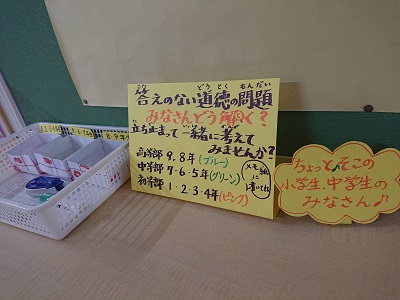 答えのない道徳の問題
みなさんどう解く?
立ち止まって一緒に考えて
みませんか?
高等部 9.8年(ブルー)
中等部 7・6・5年(グリーン)
初等部 1・2・3・4年(ピンク)
メモ紙
に
書いてね
ちょっとそこの
小学生.中学生の
みなさん♪